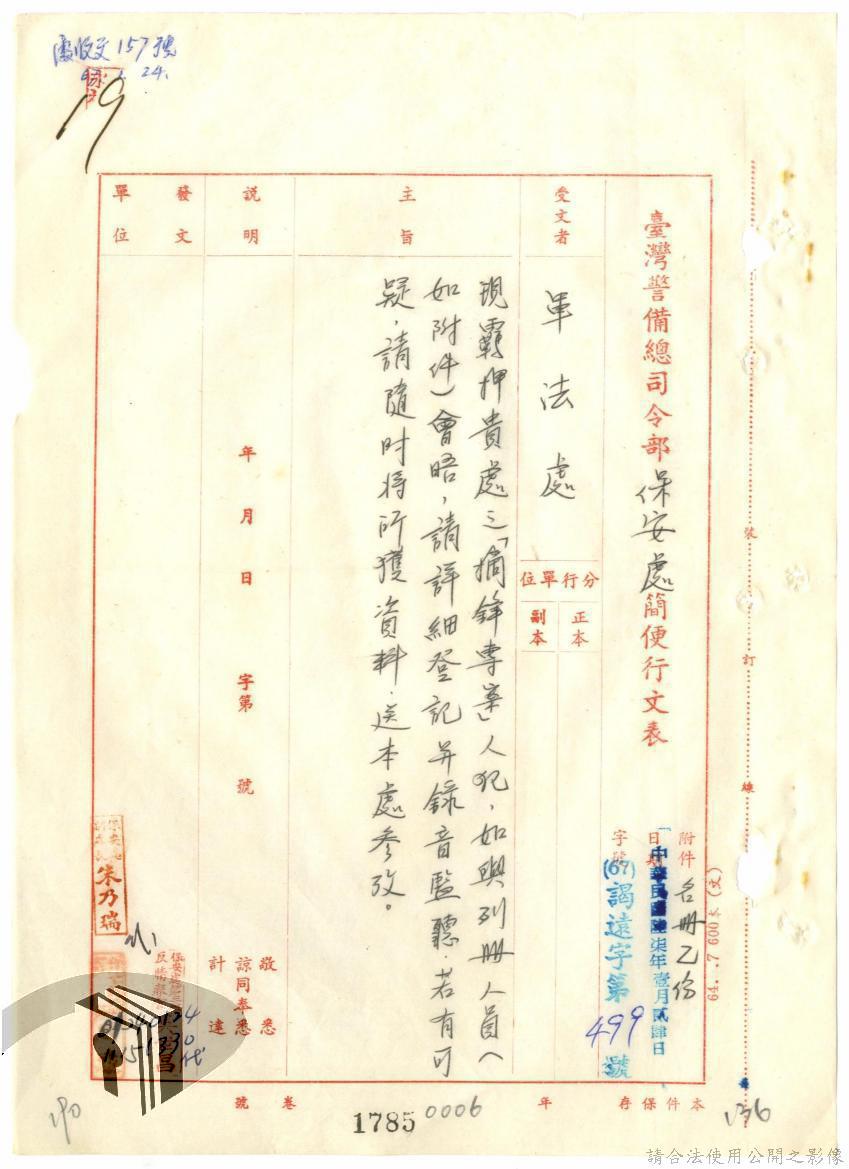 處收文157號
1. 24.
19
臺灣警備總司令部保安處簡便行文表
附件 名冊乙份
日期 中華民國陸柒年壹月貳肆日
字號 (67)謁遠字第499號
受文者
軍法處
分行單位
正本
副本
主旨
現羈押貴處之「摘鋒專案」人犯,如與列冊人員(
如附件)會晤,請詳細登記并錄音監聽.若有可
疑.請隨時將所獲資料.送本處參考。
說明
年 月 日 字第 號
敬悉
諒同奉悉
計達
發文單位
朱乃瑞
01240124
裝 訂 線
64.7 600本(文)
本件保存 年 卷 號
1785 0006
190
136
請合法使用公開之影像